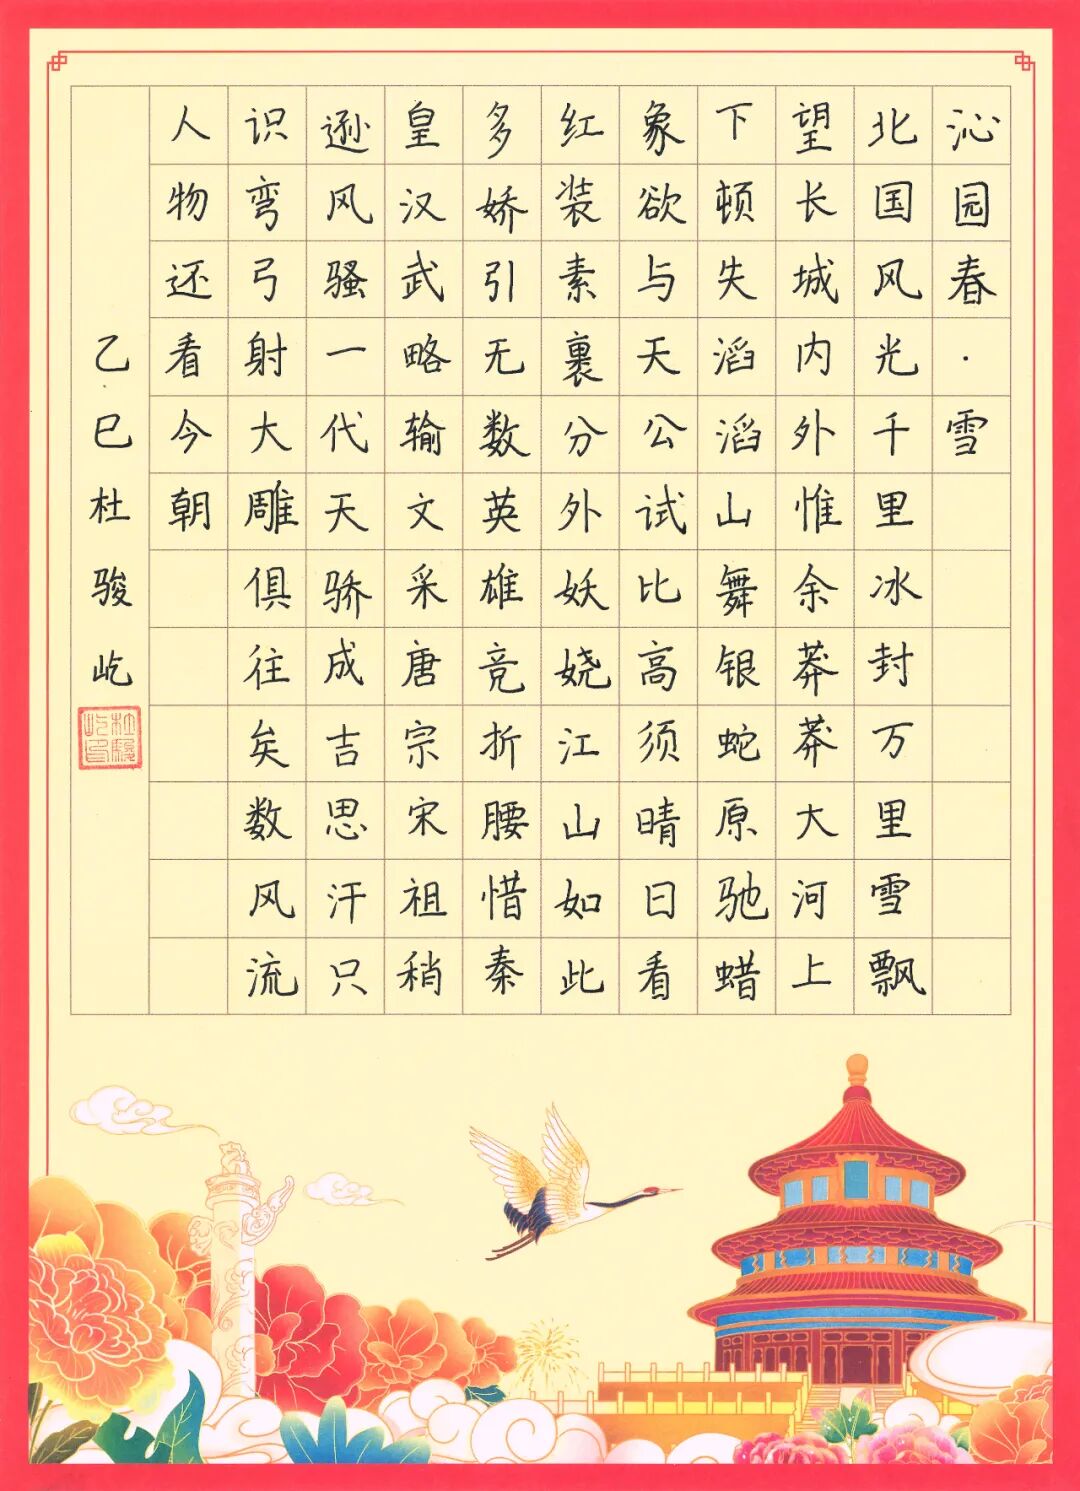 沁园春·雪
北国风光千里冰封万里雪飘
望长城内外惟余莽莽大河上
下顿失滔滔山舞银蛇原驰蜡
象欲与天公试比高须晴日看
红装素裹分外妖娆江山如此
多娇引无数英雄竞折腰惜秦
皇汉武略输文采唐宗宋祖稍
逊风骚一代天骄成吉思汗只
识弯弓射大雕俱往矣数风流
人物还看今朝
乙巳杜骏屹